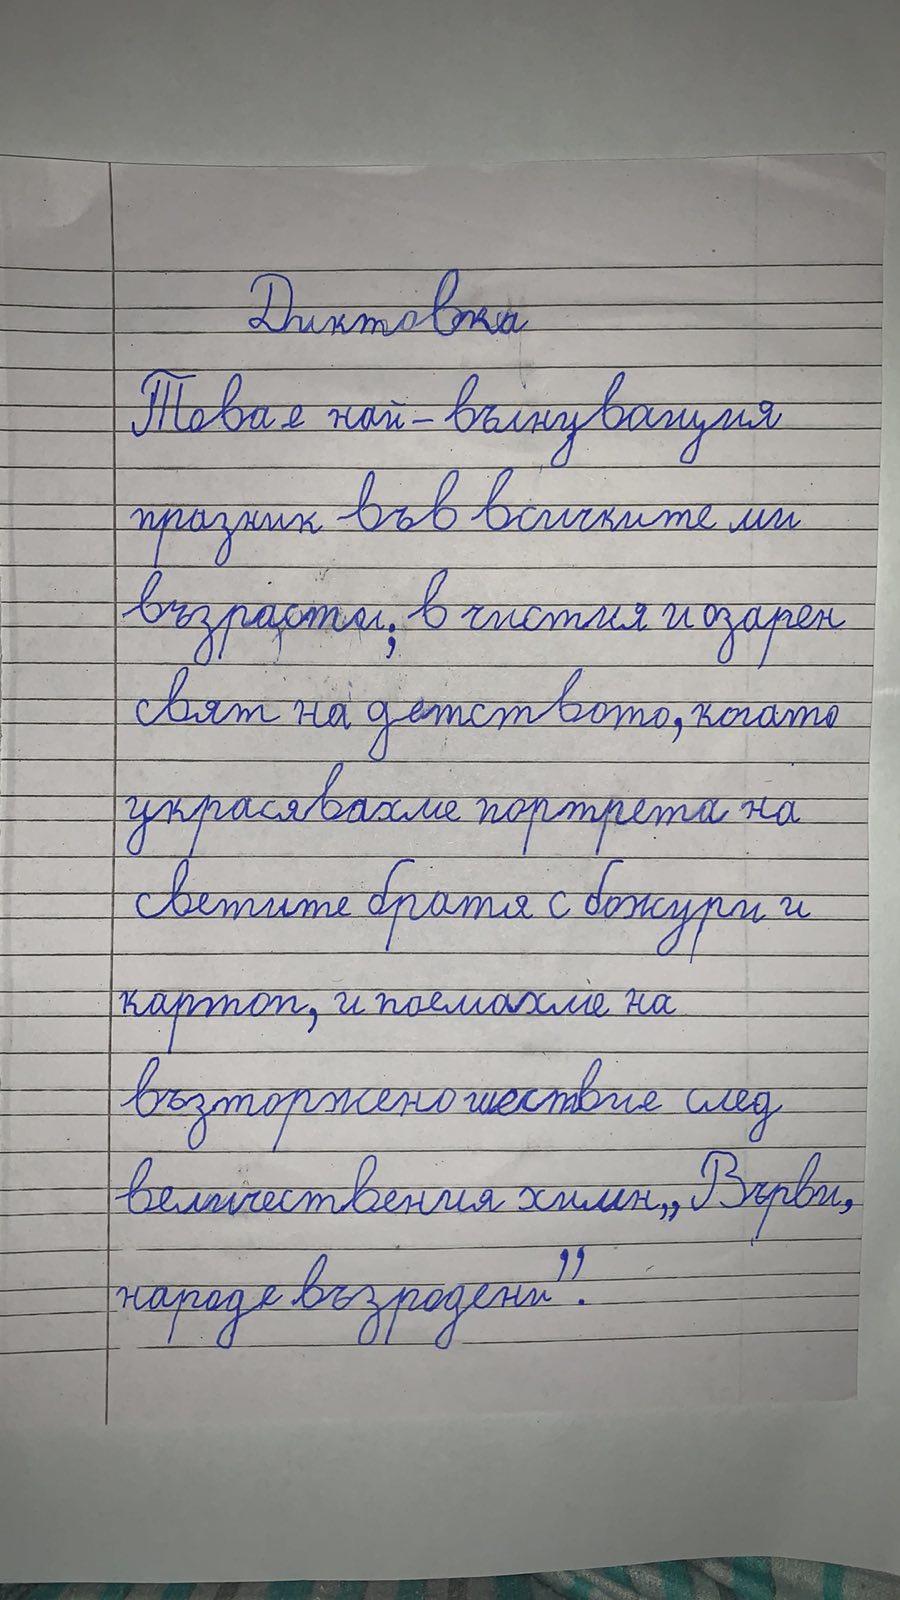 Диктовка
Това е най-вълнуващия
празник във всичките ми
възрасти; в чистия и озарен
свят на детството, когато
украсявахме портрета на
светите братя с божури и
картоп, и поемахме на
възторжено шествие след
величествения химн „Върви,
народе възродени”.